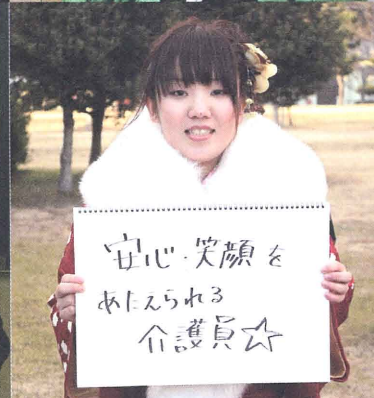 安心・笑顔を
あたえられる
介護員☆